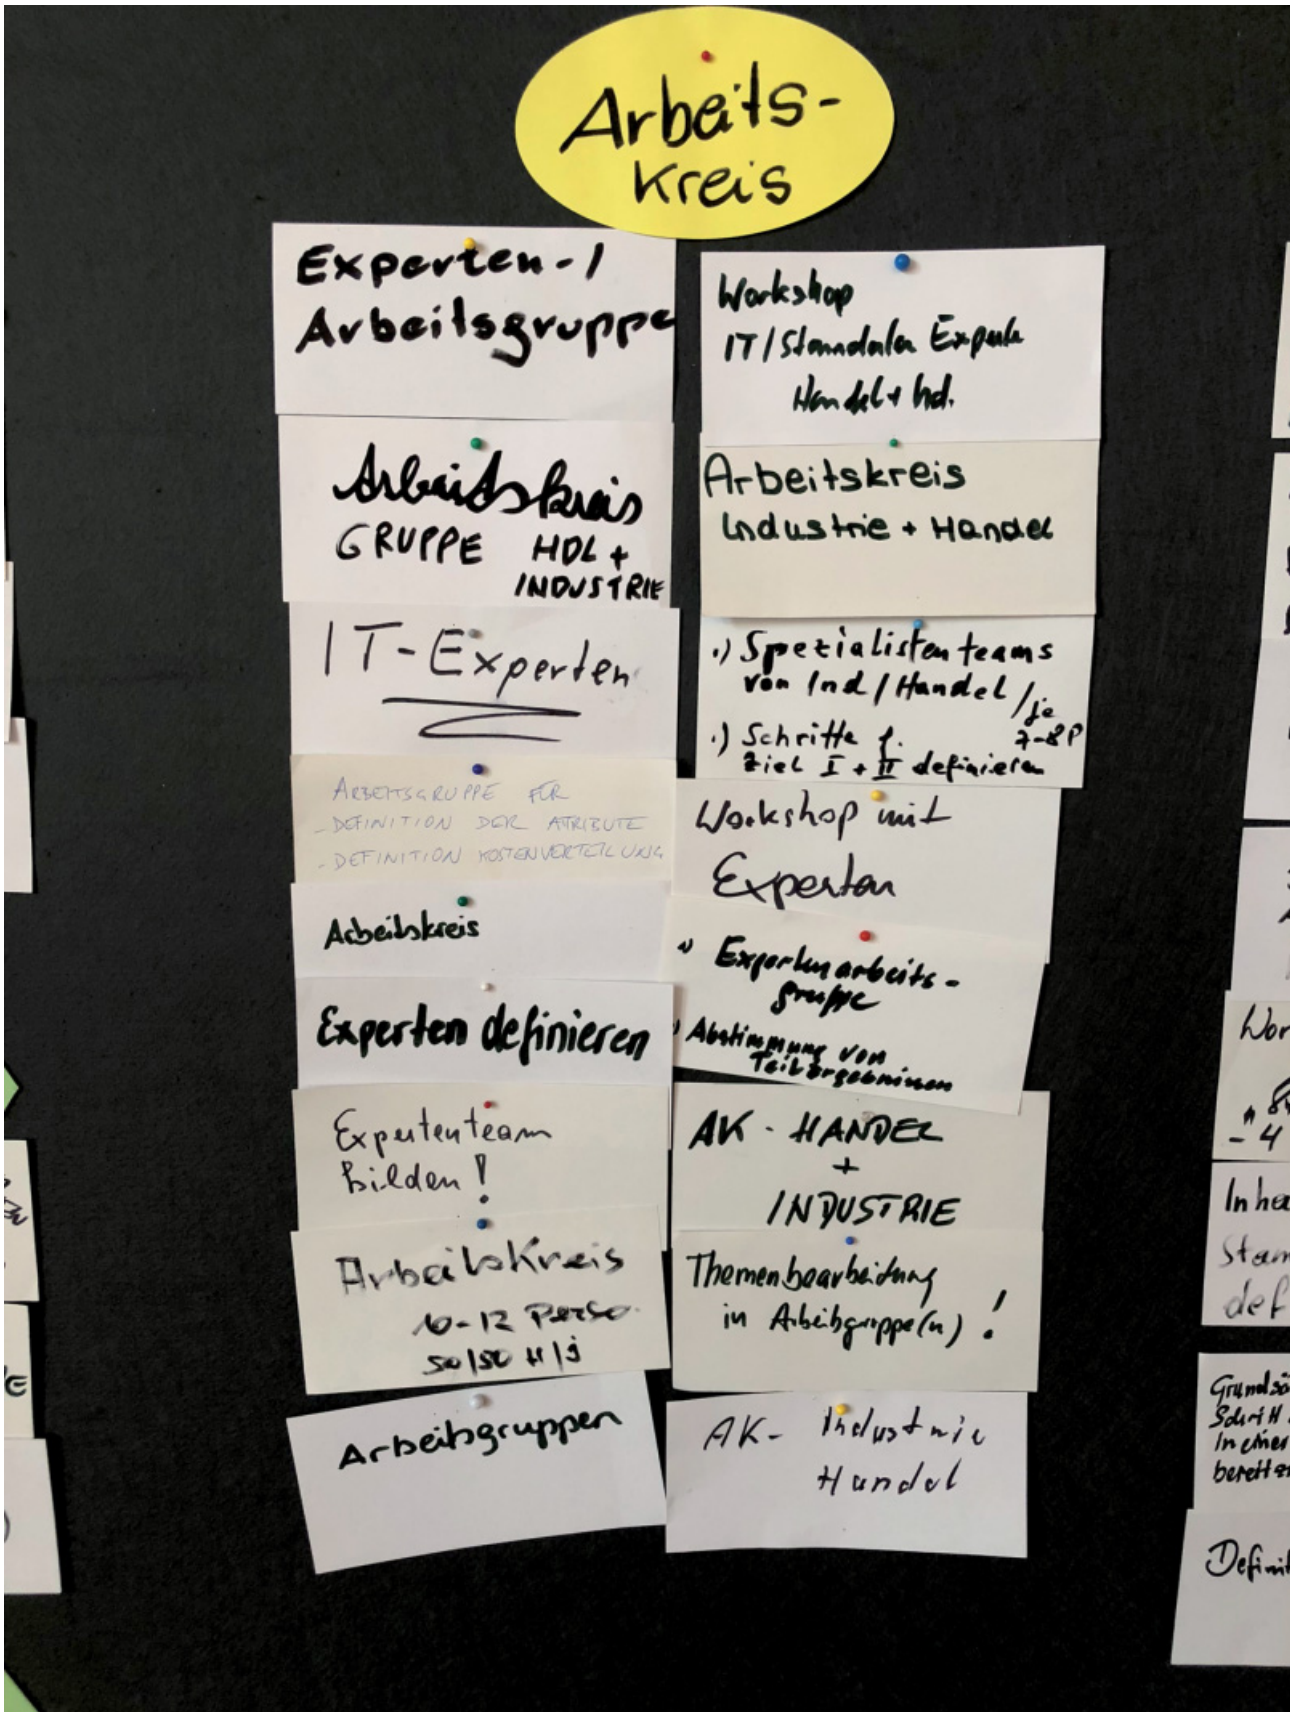 Arbeits-
kreis
Experten-/
Arbeitsgruppe
Arbeitskreis
GRUPPE HDL +
INDUSTRIE
IT-Experten
ARBEITSGRUPPE FÜR
- DEFINITION DER ATRIBUTE
- DEFINITION KOSTENVERTEILUNG
Arbeitskreis
Experten definieren
Expertenteam
bilden!
Arbeitskreis
10-12 Perso
50/50 H/J
Arbeitsgruppen
Workshop
IT/Stammdaten Experte
Handel + Ind.
Arbeitskreis
Industrie + Handel
.) Spezialistenteams
von Ind/Handel / je
7-8P
.) Schritte f.
Ziel I + II definieren
Workshop mit
Experten
Expertenarbeits-
gruppe
Abstimmung von
Teilergebnissen
AK - HANDEL
+
INDUSTRIE
Themenbearbeitung
in Arbeitsgruppe(n) !
AK- Industrie
Handel
Wor
- 4
Stam
def
Grundsä
Schritt
In einer
bereiten
Definit